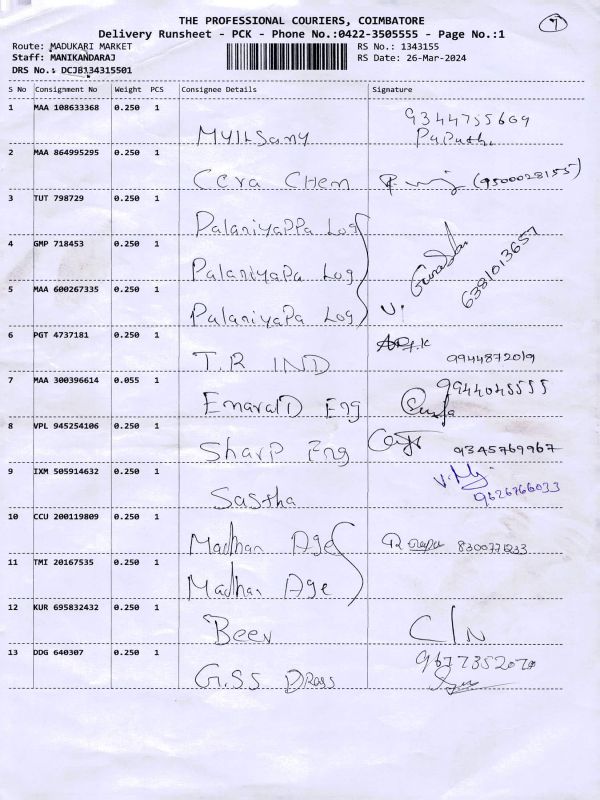 THE PROFESSIONAL COURIERS, COIMBATORE
7
Delivery Runsheet - PCK - Phone No.:0422-3505555 - Page No.:1
Route: MADUKARI MARKET
RS No.: 1343155
Staff: MANIKANDARAJ
RS Date: 26-Mar-2024
DRS No.: DCJB134315501
S No Consignment No Weight PCS Consignee Details Signature
1 MAA 108633368 0.250 1
9344755609
2 MAA 864995295 0.250 1
Cera Chem (9500028155)
3 TUT 798729 0.250 1
Palaniyappa Log
4 GMP 718453 0.250 1
Palaniyapa Log
6381013657
5 MAA 600267335 0.250 1
Palaniyapa Log
6 PGT 4737181 0.250 1
T.R IND 9944872019
7 MAA 300396614 0.055 1
9944045555
Emarald Eng
8 VPL 945254106 0.250 1
Sharp Eng 9345769967
9 IXM 505914632 0.250 1
Sastha 9626766033
10 CCU 200119809 0.250 1
Madhan Age 8300771233
11 TMI 20167535 0.250 1
Madhan Age
12 KUR 695832432 0.250 1
Beev C/N
13 DDG 640307 0.250 1
9677352070
G.SS Drass